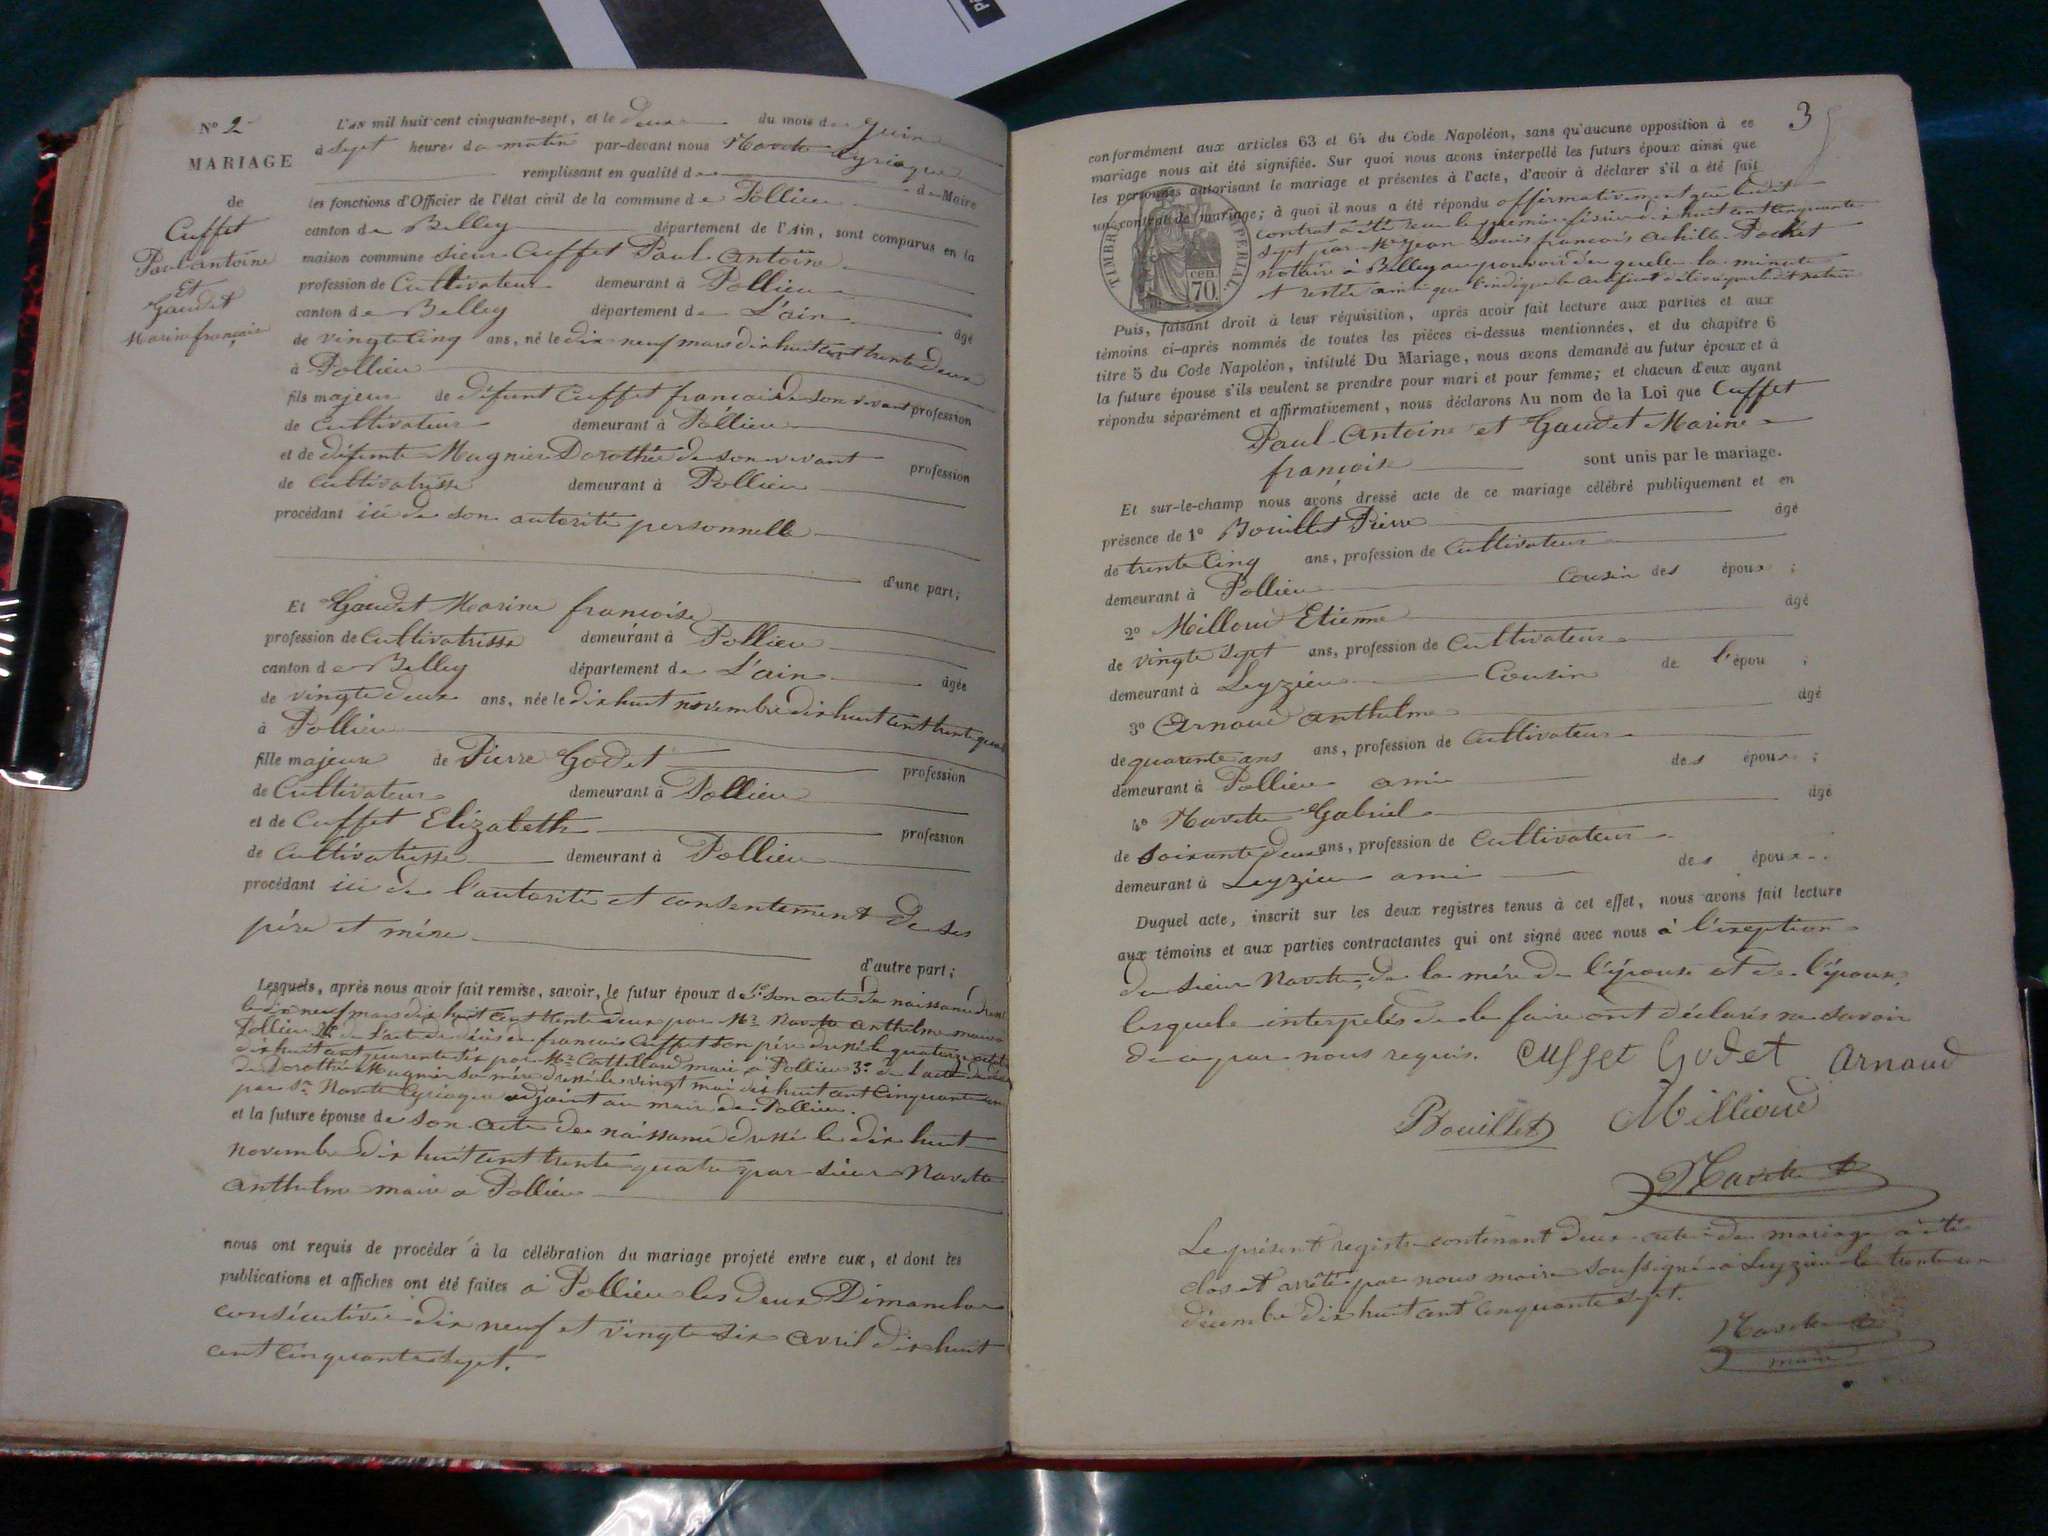 Nº 2
MARIAGE
de
Cuffet
Paul Antoine
Et
Gaudet
Marine françoise
L'AN mil huit cent cinquante-sept, et le deux du mois de juin
à sept heures du matin par-devant nous Navette Cyriaque
remplissant en qualité de Maire
les fonctions d'Officier de l'état civil de la commune de Pollieu
canton de Belley département de l'Ain, sont comparus en la
maison commune sieur Cuffet Paul Antoine
profession de Cultivateur demeurant à Pollieu
canton de Belley département de L'ain âgé
de vingt Cinq ans, né le dix neuf mars dix huit cent trente deux
à Pollieu
fils majeur de défunt Cuffet françois de son vivant profession
de Cultivateur demeurant à Pollieu
et de défunte Magnier Dorothée de son vivant profession
de Cultivatrisse demeurant à Pollieu
procédant ici de son autorité personnelle
d'une part;
Et Gaudet Marine françoise
profession de Cultivatrisse demeurant à Pollieu
canton de Belley département de L'ain âgée
de vingt deux ans, née le dix huit novembre dix huit cent trente quatre
à Pollieu
fille majeure de Pierre Godet profession
de Cultivateur demeurant à Pollieu
et de Cuffet Elizabeth profession
de Cultivatrisse demeurant à Pollieu
procédant ici de l'autorité et consentement de ses
père et mère
d'autre part;
Lesquels, après nous avoir fait remise, savoir, le futur époux de 1º son acte de naissance dressé
le dix neuf mars dix huit cent trente deux par Mr Navette anthelme maire
Pollieu 2º de l'acte de décès de françois Cuffet son père dressé le quatorze
dix huit cent quarante six par Mr maire à Pollieu 3º de l'acte de
de Dorothée Magnier sa mère dressé le vingt mai dix huit cent Cinquante
par Sr Navette Cyriaque adjoint au maire de Pollieu.
et la future épouse de son acte de naissance dressé le dix huit
novembre dix huit cent trente quatre par sieur Navette
anthelme maire a Pollieu
nous ont requis de procéder à la célébration du mariage projeté entre eux, et dont les
publications et affiches ont été faites à Pollieu les deux Dimanches
consécutives dix neuf et vingt six avril dix huit
cent Cinquante sept.
3
conformément aux articles 63 et 64 du Code Napoléon, sans qu'aucune opposition à ce
mariage nous ait été signifiée. Sur quoi nous avons interpellé les futurs époux ainsi que
les personnes autorisant le mariage et présentes à l'acte, d'avoir à déclarer s'il a été fait
un contrat de mariage; à quoi il nous a été répondu affirmativement que ledit
contrat a été reçu le premier février dix huit cent cinquante
sept par Me Jean Louis françois achille Pochet
notaire à Belley au pouvoir du quel la minute
et restée ainsi que l'indique le certificat
TIMBRE IMPERIAL
70 cen.
Puis, faisant droit à leur réquisition, après avoir fait lecture aux parties et aux
témoins ci-après nommés de toutes les pièces ci-dessus mentionnées, et du chapitre 6
titre 5 du Code Napoléon, intitulé Du Mariage, nous avons demandé au futur époux et à
la future épouse s'ils veulent se prendre pour mari et pour femme; et chacun d'eux ayant
répondu séparément et affirmativement, nous déclarons Au nom de la Loi que Cuffet
Paul Antoine et Gaudet Marine
françoise sont unis par le mariage.
Et sur-le-champ nous avons dressé acte de ce mariage célébré publiquement et en
présence de 1º Bouillet Pierre âgé
de trente Cinq ans, profession de Cultivateur
demeurant à Pollieu cousin des époux;
2º Milloud Etienne âgé
de vingt sept ans, profession de Cultivateur
demeurant à Leyzieu Cousin de l'épou;
3º Arnaud anthelme âgé
de quarente ans ans, profession de Cultivateur
demeurant à Pollieu ami des époux;
4º Navette Gabriel âgé
de soixante deux ans, profession de Cultivateur
demeurant à Leyzieu ami des époux.
Duquel acte, inscrit sur les deux registres tenus à cet effet, nous avons fait lecture
aux témoins et aux parties contractantes qui ont signé avec nous à l'exeption
du sieur Navette, de la mère de l'épouse et de l'épouse,
lesquels interpelés de le faire ont déclarés ne savoir
de ce par nous requis. Cuffet Godet Arnaud
Bouillet Millioud
Navette
Le présent registre contenant deux actes de mariage à été
clos et arrêté par nous maire soussigné à Leyzieu le trente un
décembre dix huit cent Cinquante sept.
Navette
maire